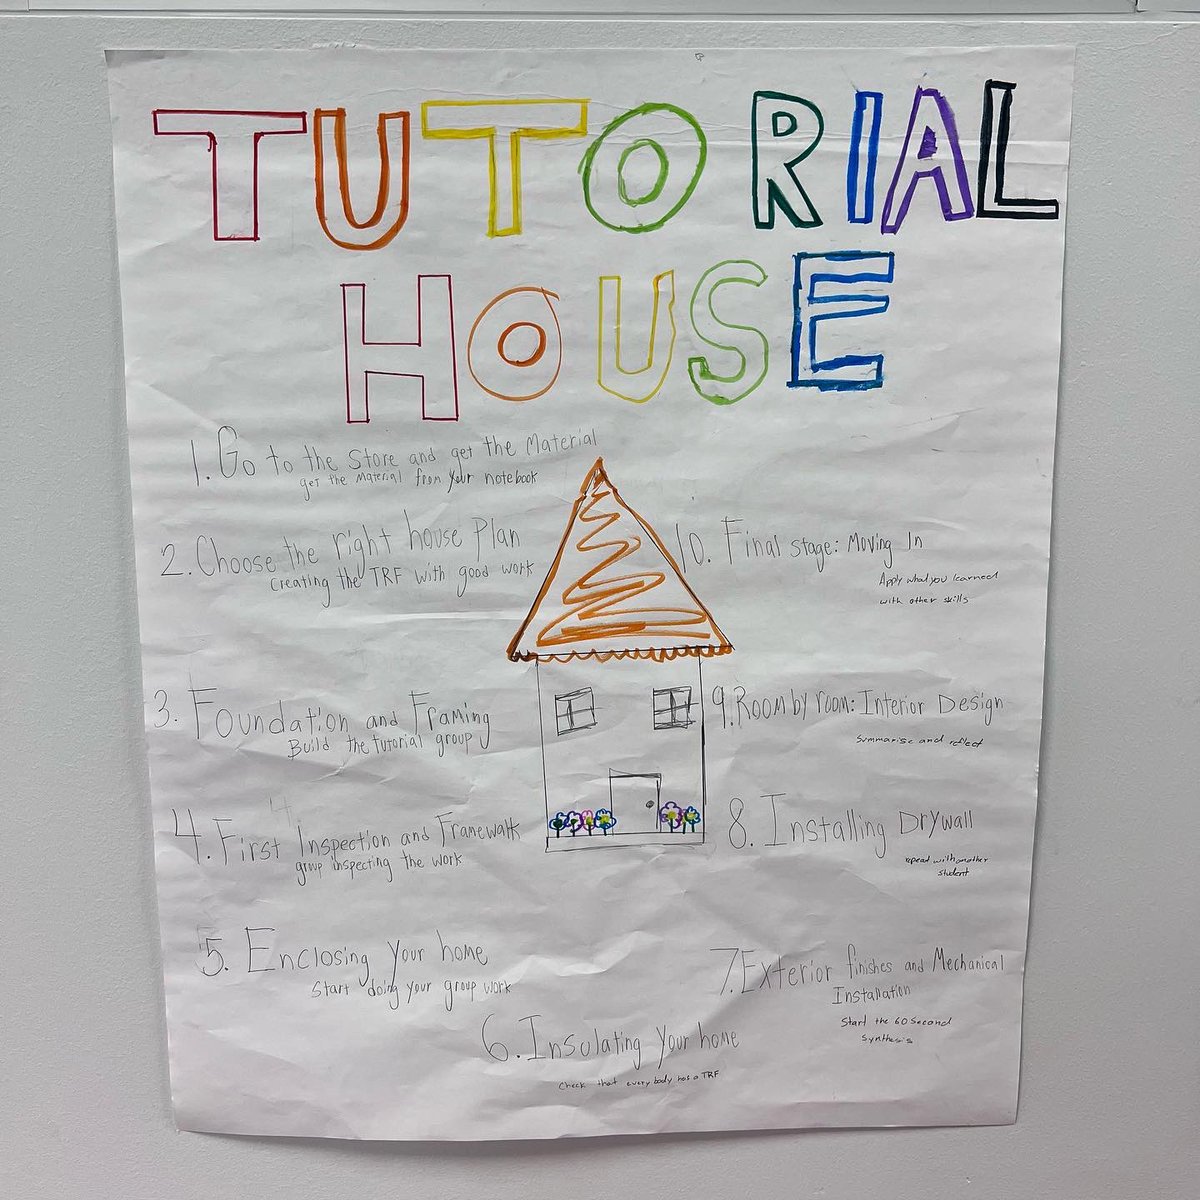 TUTORIAL
HOUSE
1. Go to the Store and get the Material
get the Material from your notebook
2. Choose the right house Plan
Creating the TRF with good work
3. Foundation and Framing
Build the tutorial group
4. First Inspection and Framewalk
group inspecting the work
5. Enclosing your home
Start doing your group work
6. Insulating your home
Check that everybody has a TRF
7. Exterior finishes and Mechanical
Installation
Start the 60 Second
Synthesis
8. Installing Drywall
repeat with another
student
9. Room by room: Interior Design
Summarise and reflect
10. Final stage: Moving In
Apply what you learned
with other skills